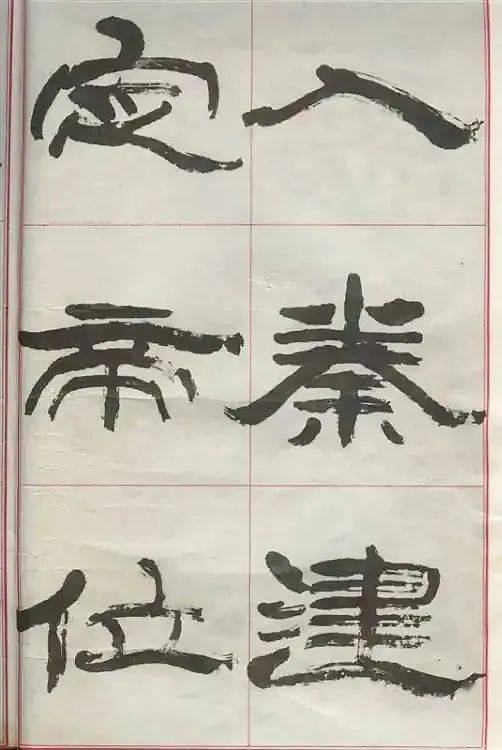 入秦建
定帝位